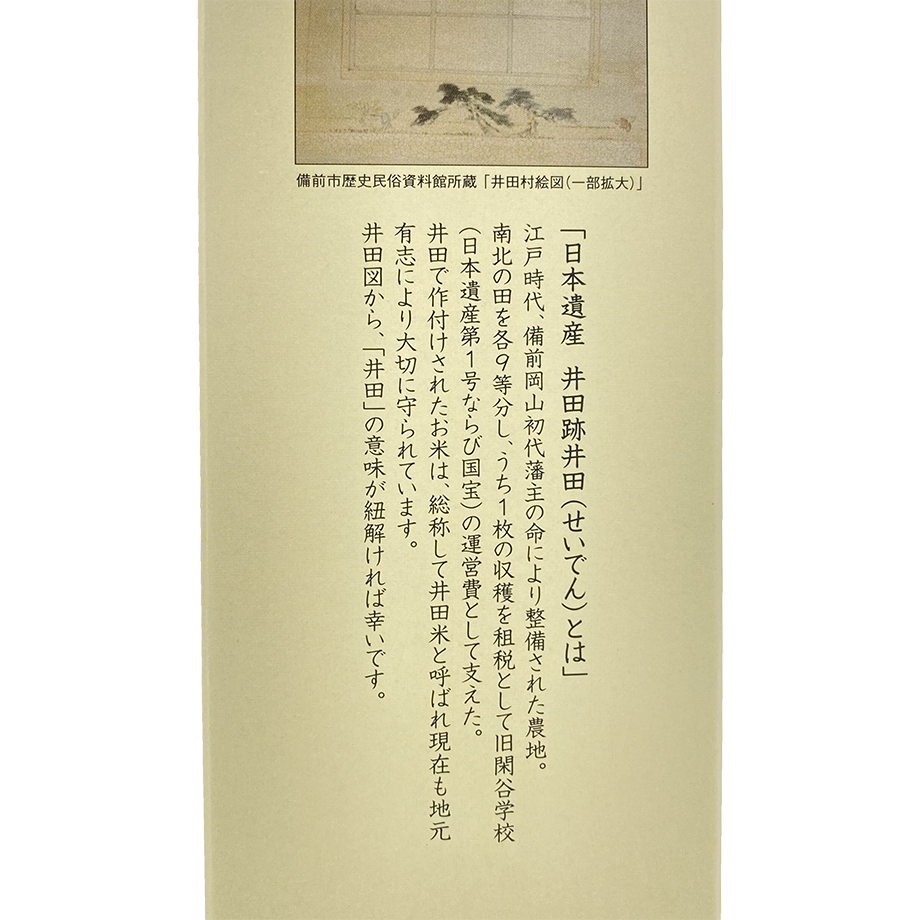 備前市歴史民俗資料館所蔵「井田村絵図(一部拡大)」
「日本遺産 井田跡井田(せいでん)とは」
江戸時代、備前岡山初代藩主の命により整備された農地。
南北の田を各9等分し、うち1枚の収穫を租税として旧閑谷学校
(日本遺産第1号ならび国宝)の運営費として支えた。
井田で作付けされたお米は、総称して井田米と呼ばれ現在も地元
有志により大切に守られています。
井田図から、「井田」の意味が紐解ければ幸いです。